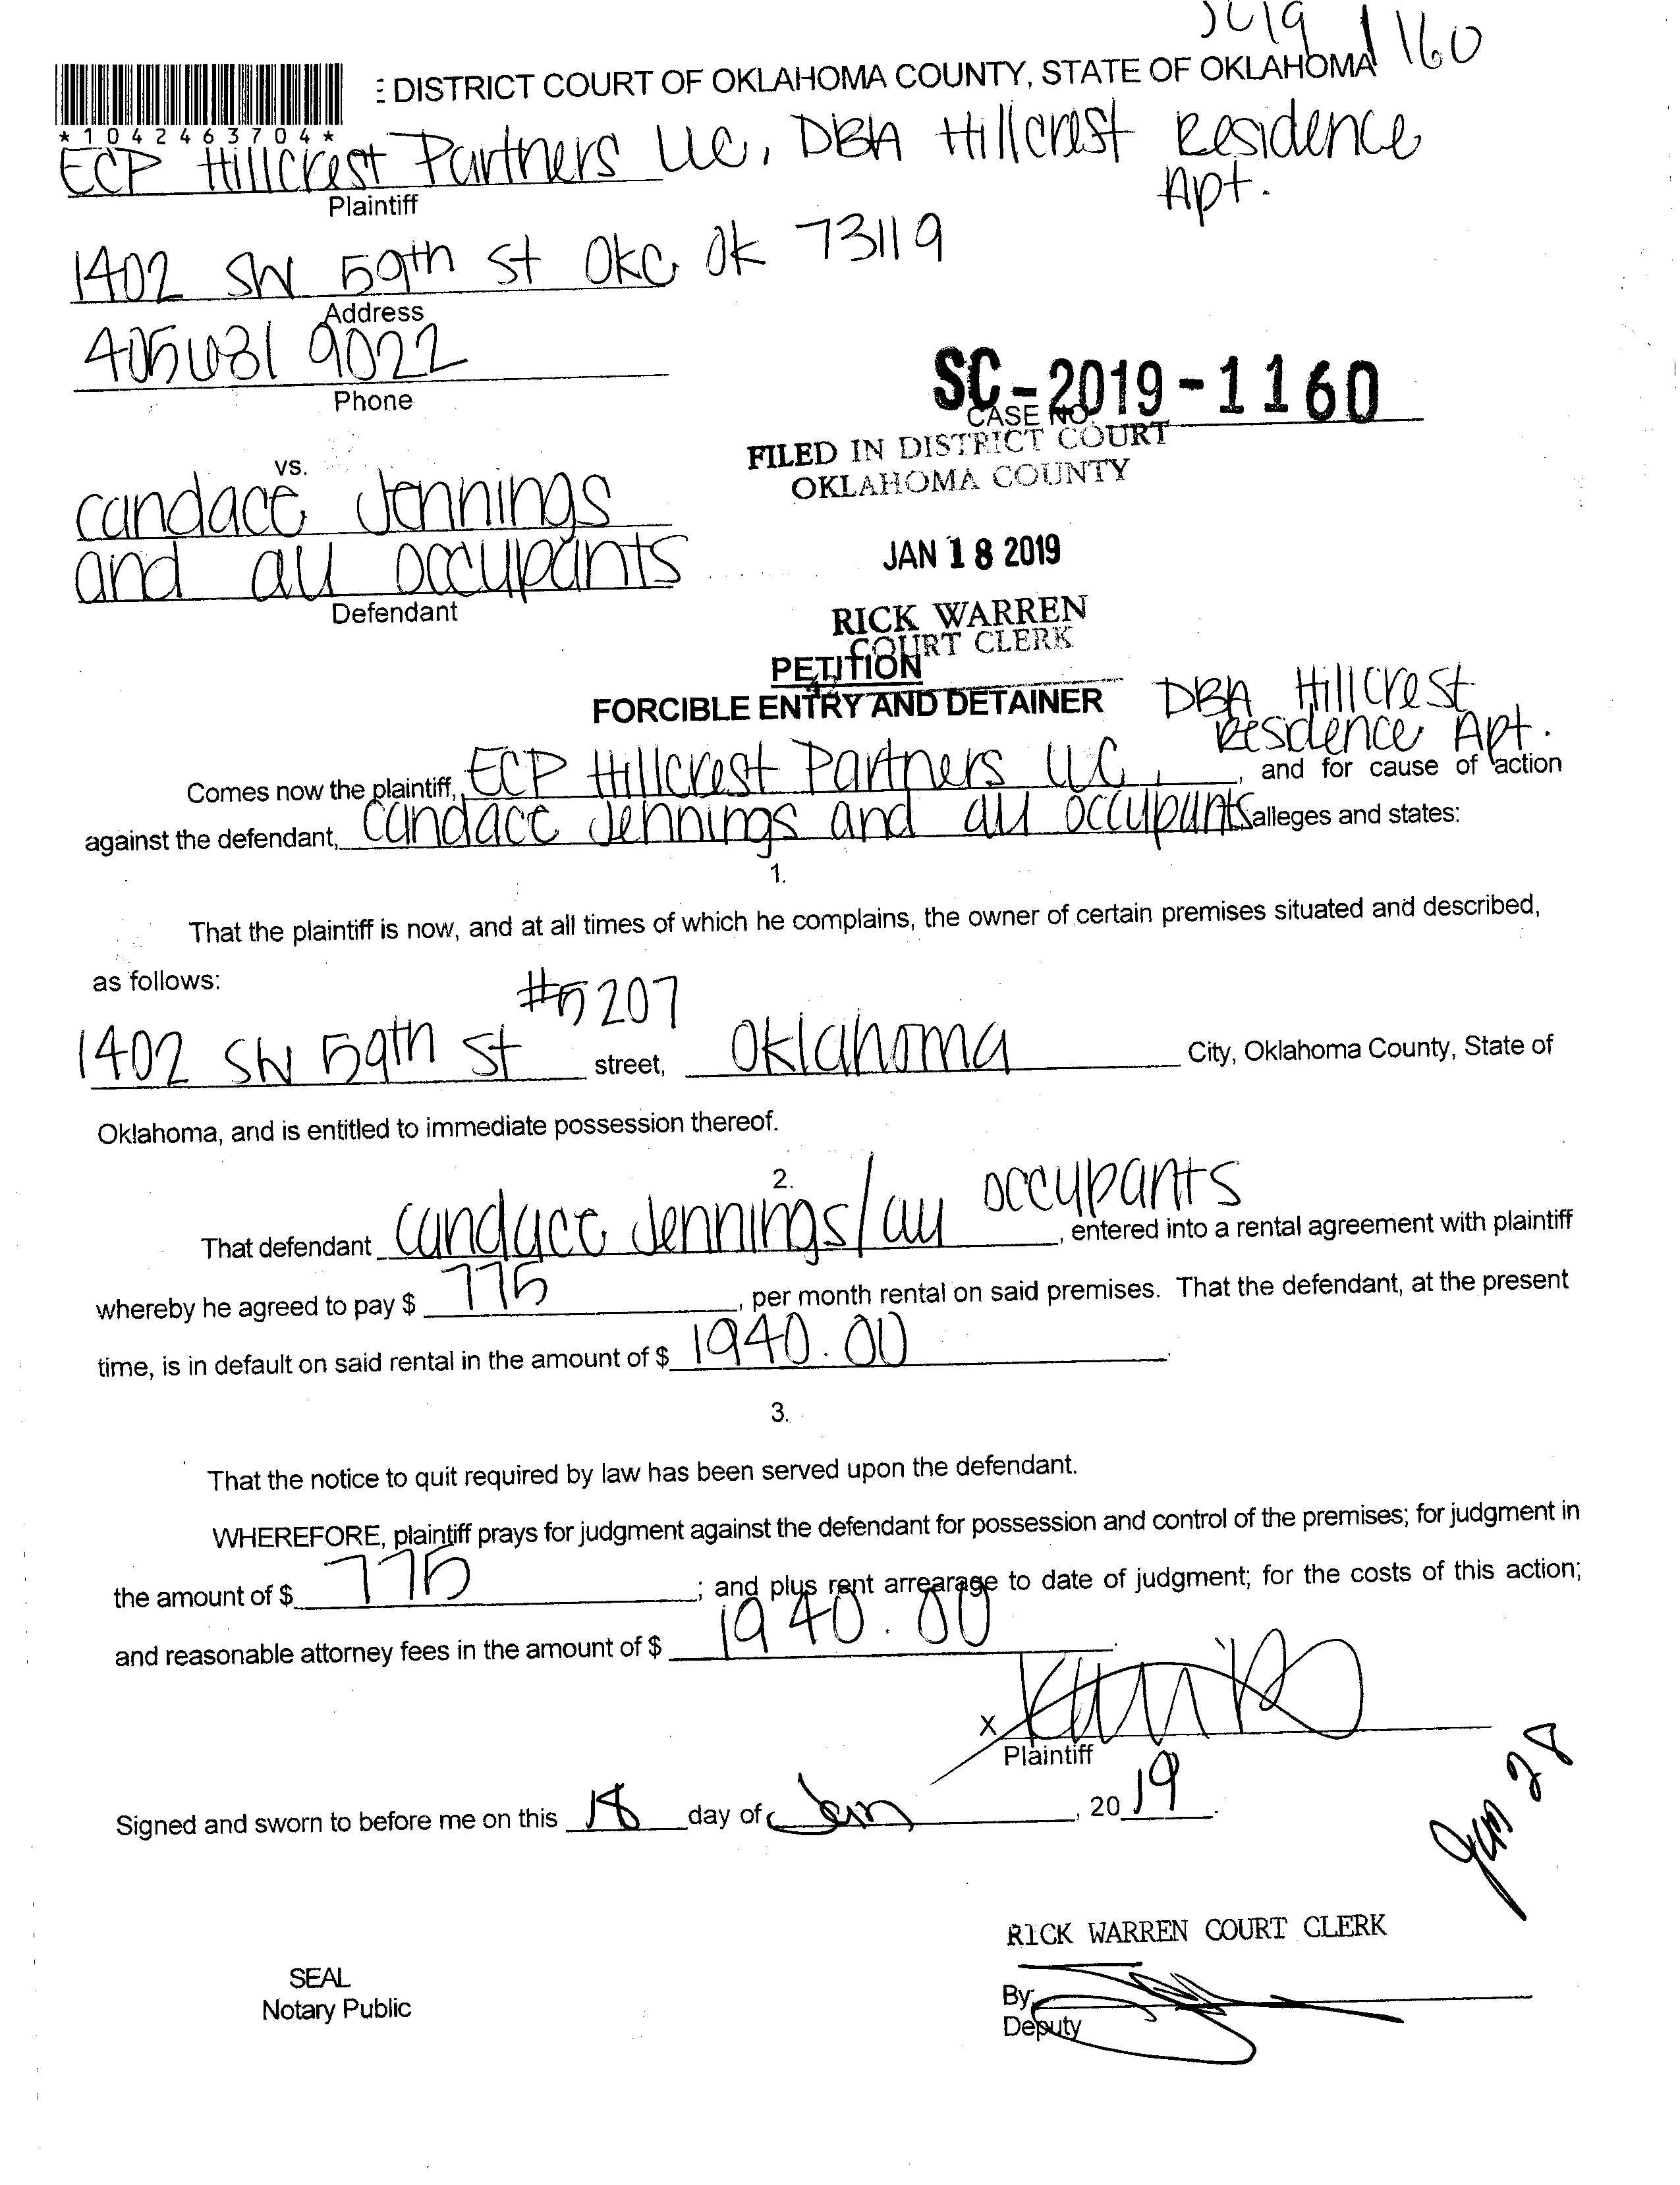 SC19 1160
: DISTRICT COURT OF OKLAHOMA COUNTY, STATE OF OKLAHOMA
*1042463704*
ECP Hillcrest Partners LLC, DBA Hillcrest Residence
Apt.
Plaintiff
1402 SW 59th St OKC OK 73119
Address
405 681 9022
Phone
SC-2019-1160
CASE NO.
FILED IN DISTRICT COURT
OKLAHOMA COUNTY
vs.
candace Jennings
and all occupants
Defendant
JAN 18 2019
RICK WARREN
COURT CLERK
PETITION
FORCIBLE ENTRY AND DETAINER
DBA Hillcrest
Resdence Apt.
Comes now the plaintiff, ECP Hillcrest Partners LLC, , and for cause of action
against the defendant, Candace Jennings and all occupants alleges and states:
1.
That the plaintiff is now, and at all times of which he complains, the owner of certain premises situated and described,
as follows:
#5207
1402 SW 59th St street, Oklahoma City, Oklahoma County, State of
Oklahoma, and is entitled to immediate possession thereof.
2.
That defendant Candace Jennings/all occupants, entered into a rental agreement with plaintiff
whereby he agreed to pay $ 775, per month rental on said premises. That the defendant, at the present
time, is in default on said rental in the amount of $ 1940.00.
3.
That the notice to quit required by law has been served upon the defendant.
WHEREFORE, plaintiff prays for judgment against the defendant for possession and control of the premises; for judgment in
the amount of $ 775; and plus rent arrearage to date of judgment; for the costs of this action;
and reasonable attorney fees in the amount of $ 1940.00.
X
Plaintiff
Signed and sworn to before me on this 18 day of Jan, 2019.
Jan 28
RICK WARREN COURT CLERK
SEAL
Notary Public
By:
Deputy